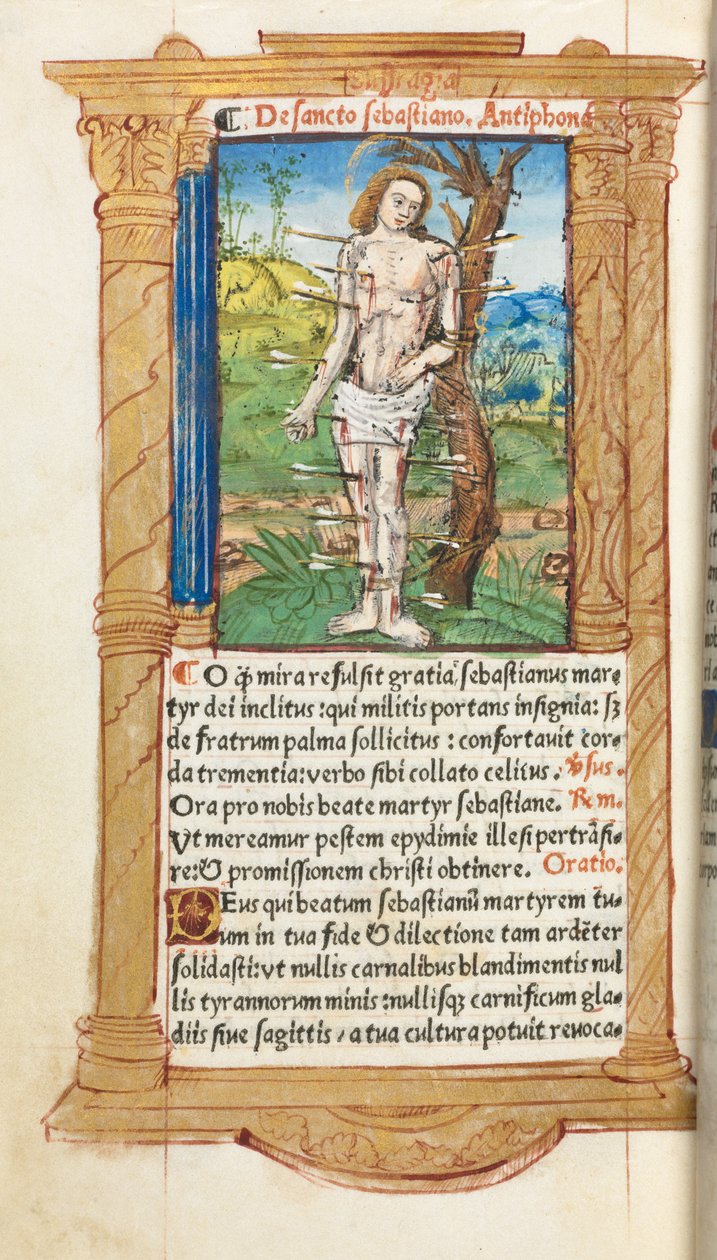 Suffragia
¶ De sancto sebastiano. Antiphona
¶ O q̃ȝ mira refulsit gratia, sebastianus mar-
tyr dei inclitus: qui militis portans insignia: sȝ
de fratrum palma sollicitus: confortauit cor-
da trementia: verbo sibi collato celitus. v̾sus.
Ora pro nobis beate martyr sebastiane. ℞m.
Vt mereamur pestem epydimie illesi pertrãsi-
re: & promissionem christi obtinere. Oratio.
DEus qui beatum sebastianũ martyrem tu-
um in tua fide & dilectione tam ardẽter
solidasti: vt nullis carnalibus blandimentis nul
lis tyrannorum minis: nullisqȝ carnificum gla-
diis siue sagittis / a tua cultura potuit reuoca-